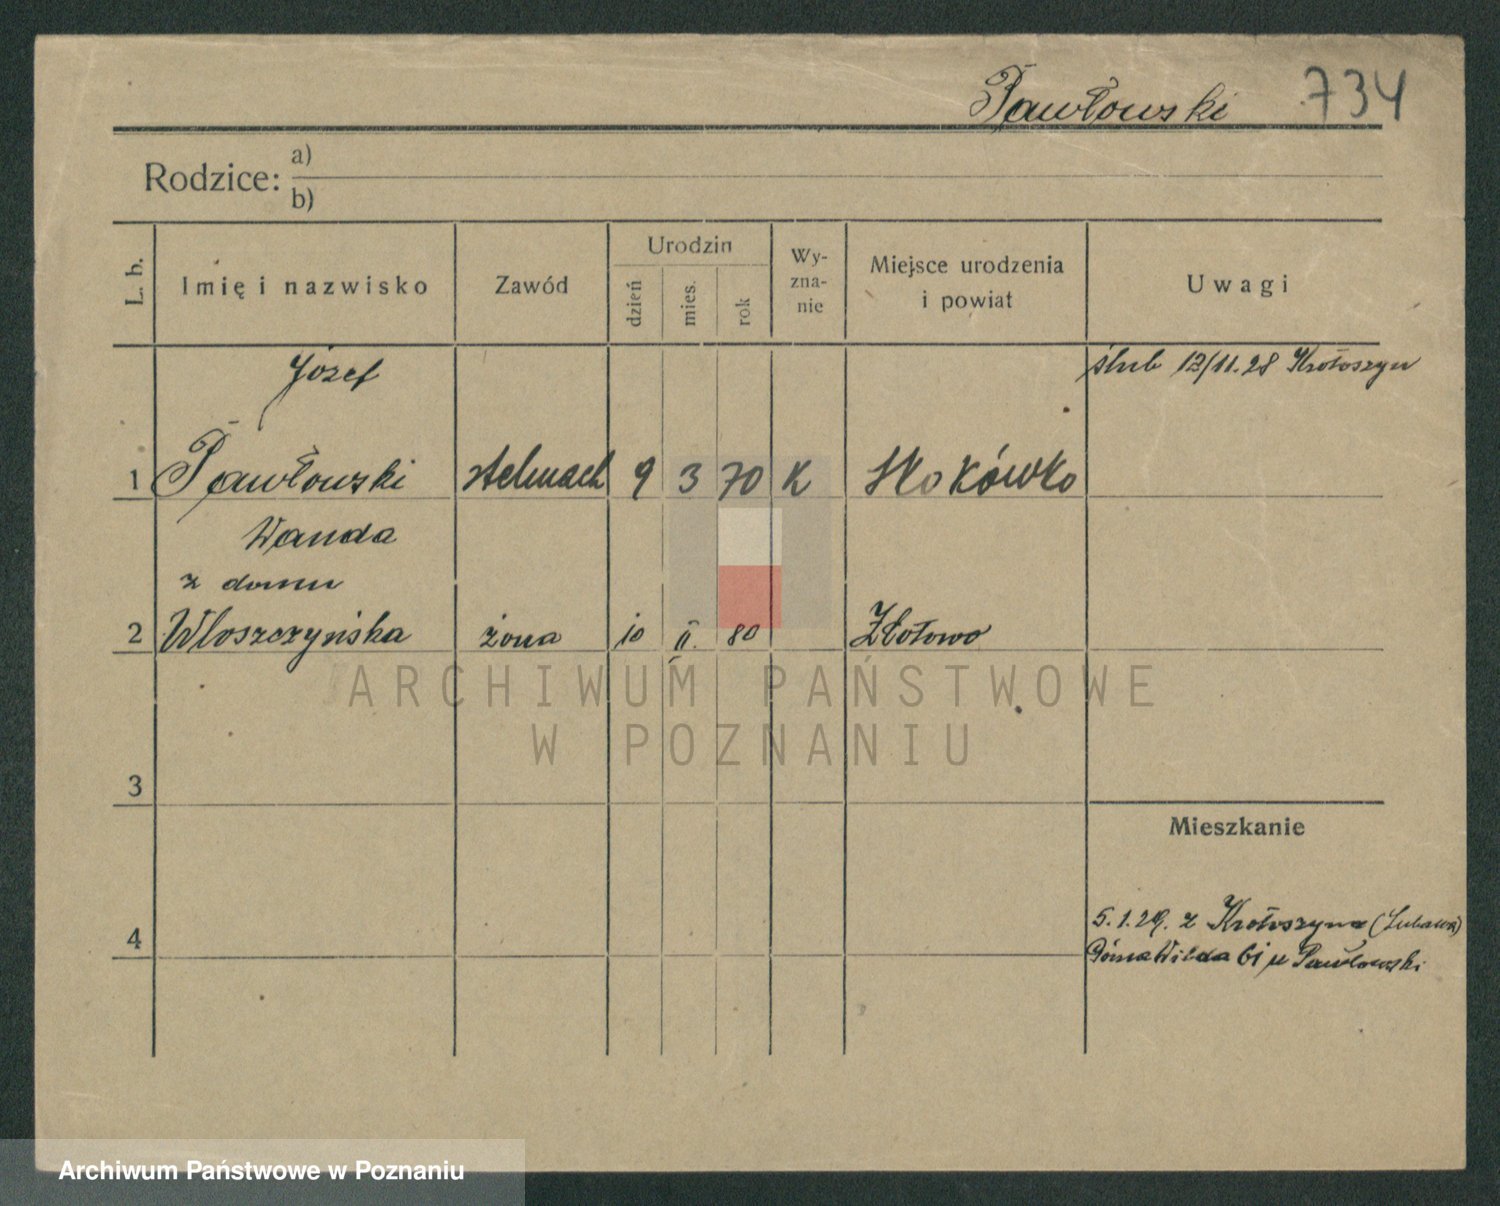 Pawłowski 734
Rodzice: a)
b)
L. b.
Imię i nazwisko
Zawód
Urodzin
dzień
mies.
rok
Wy-
zna-
nie
Miejsce urodzenia
i powiat
Uwagi
Józef
ślub 12/11.28 Krotoszyn
1 Pawłowski stelmach 9 3 70 K Skokówko
Wanda
z domu
2 Włoszczyńska żona 10 II. 80 Złotowo
ARCHIWUM PAŃSTWOWE
W POZNANIU
3
Mieszkanie
4
5.1.29. z Krotoszyna
Górna Wilda 61 u Pawłowski
Archiwum Państwowe w Poznaniu